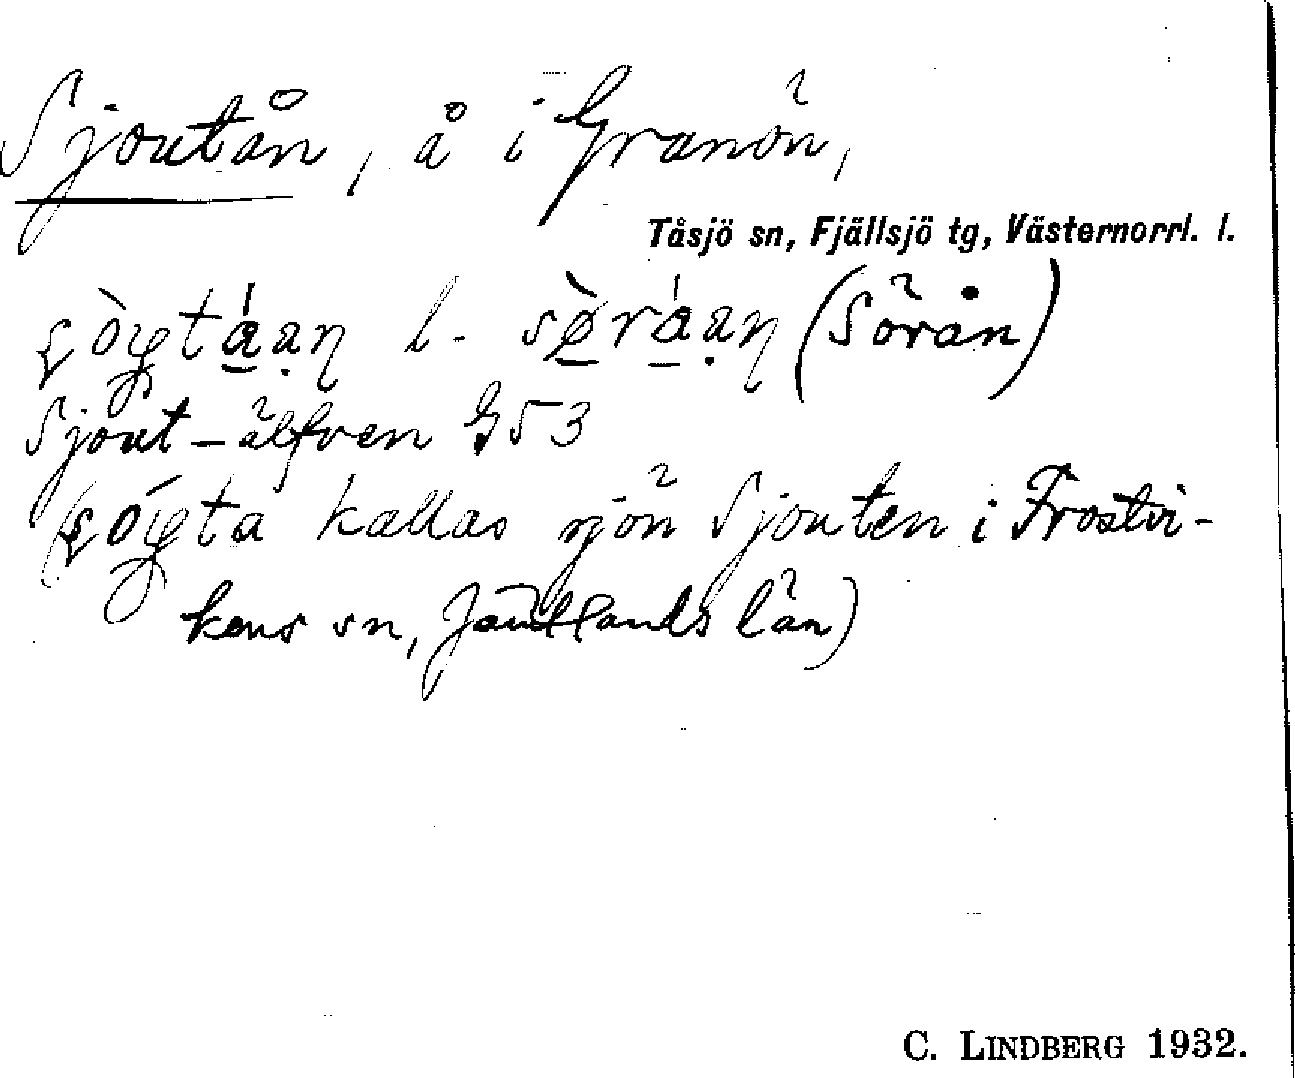 Sjoutån, å i Granön,
Tåsjö sn, Fjällsjö tg, Västernorrl. l.
l. (Sörån)
Sjout-älfven G 53
kallas sjön Sjouten i Frostvi-
kens sn, Jämtlands län)
C. LINDBERG 1932.